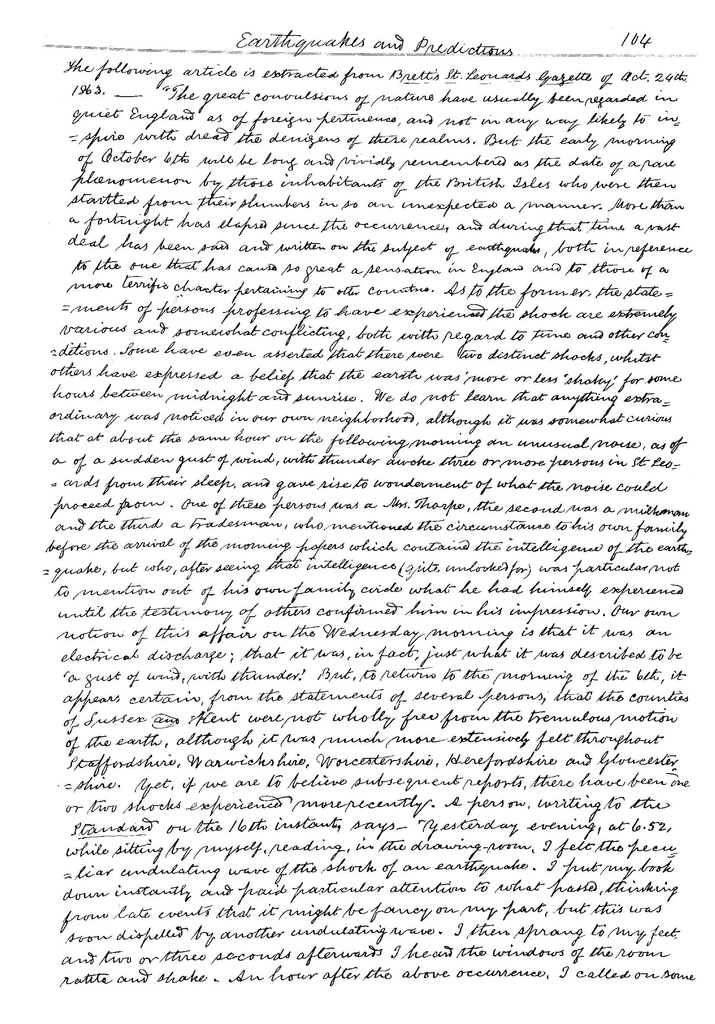 Earthquakes and Predictions 104
The following article is extracted from Brett's St. Leonards Gazette of Oct. 24th
1863. — "The great convulsions of nature have usually been regarded in
quiet England as of foreign pertinence, and not in any way likely to in=
=spire with dread the denizens of these realms. But the early morning
of October 6th will be long and vividly remembered as the date of a rare
phœnomenon by those inhabitants of the British Isles who were then
startled from their slumbers in so an unexpected a manner. More than
a fortnight has elapsed since the occurrence, and during that time a vast
deal has been said and written on the subject of earthquakes, both in reference
to the one that has caused so great a sensation in England and to those of a
more terrific character pertaining to other countries. As to the former, the state=
=ments of persons professing to have experienced the shock are extremely
various and somewhat conflicting, both with regard to time and other con=
=ditions. Some have even asserted that there were two distinct shocks, whilst
others have expressed a belief that the earth was 'more or less 'shaky' for some
hours between midnight and sunrise. We do not learn that anything extra=
ordinary was noticed in our own neighborhood, although it was somewhat curious
that at about the same hour on the following morning an unusual noise, as of
a of a sudden gust of wind, with thunder awoke three or more persons in St Leo=
=ards from their sleep, and gave rise to wonderment of what the noise could
proceed from. One of these persons was a Mrs. Thorpe, the second was a milkman
and the third a tradesman, who mentioned the circumstance to his own family
before the arrival of the morning papers which contained the intelligence of the earth=
=quake, but who, after seeing that intelligence (quite unlooked for) was particular not
to mention out of his own family circle what he had himself experienced
until the testimony of others confirmed him in his impression. Our own
notion of this affair on the Wednesday morning is that it was an
electrical discharge; that it was, in fact, just what it was described to be
'a gust of wind, with thunder.' But, to return to the morning of the 6th, it
appears certain, from the statements of several persons, that the counties
of Sussex and Kent were not wholly free from the tremulous motion
of the earth, although it was much more extensively felt throughout
Staffordshire, Warwickshire, Worcestershire, Herefordshire and Gloucester
=shire. Yet, if we are to believe subsequent reports, there have been one
or two shocks experienced more recently. A person, writing to the
Standard on the 16th instant, says – Yesterday evening, at 6.52,
while sitting by myself, reading, in the drawing-room, I felt the pecu
=liar undulating wave of the shock of an earthquake. I put my book
down instantly and paid particular attention to what passed, thinking
from late events that it might be fancy on my part, but this was
soon dispelled by another undulating wave. I then sprang to my feet,
and two or three seconds afterwards I heard the windows of the room
rattle and shake. An hour after the above occurrence, I called on some